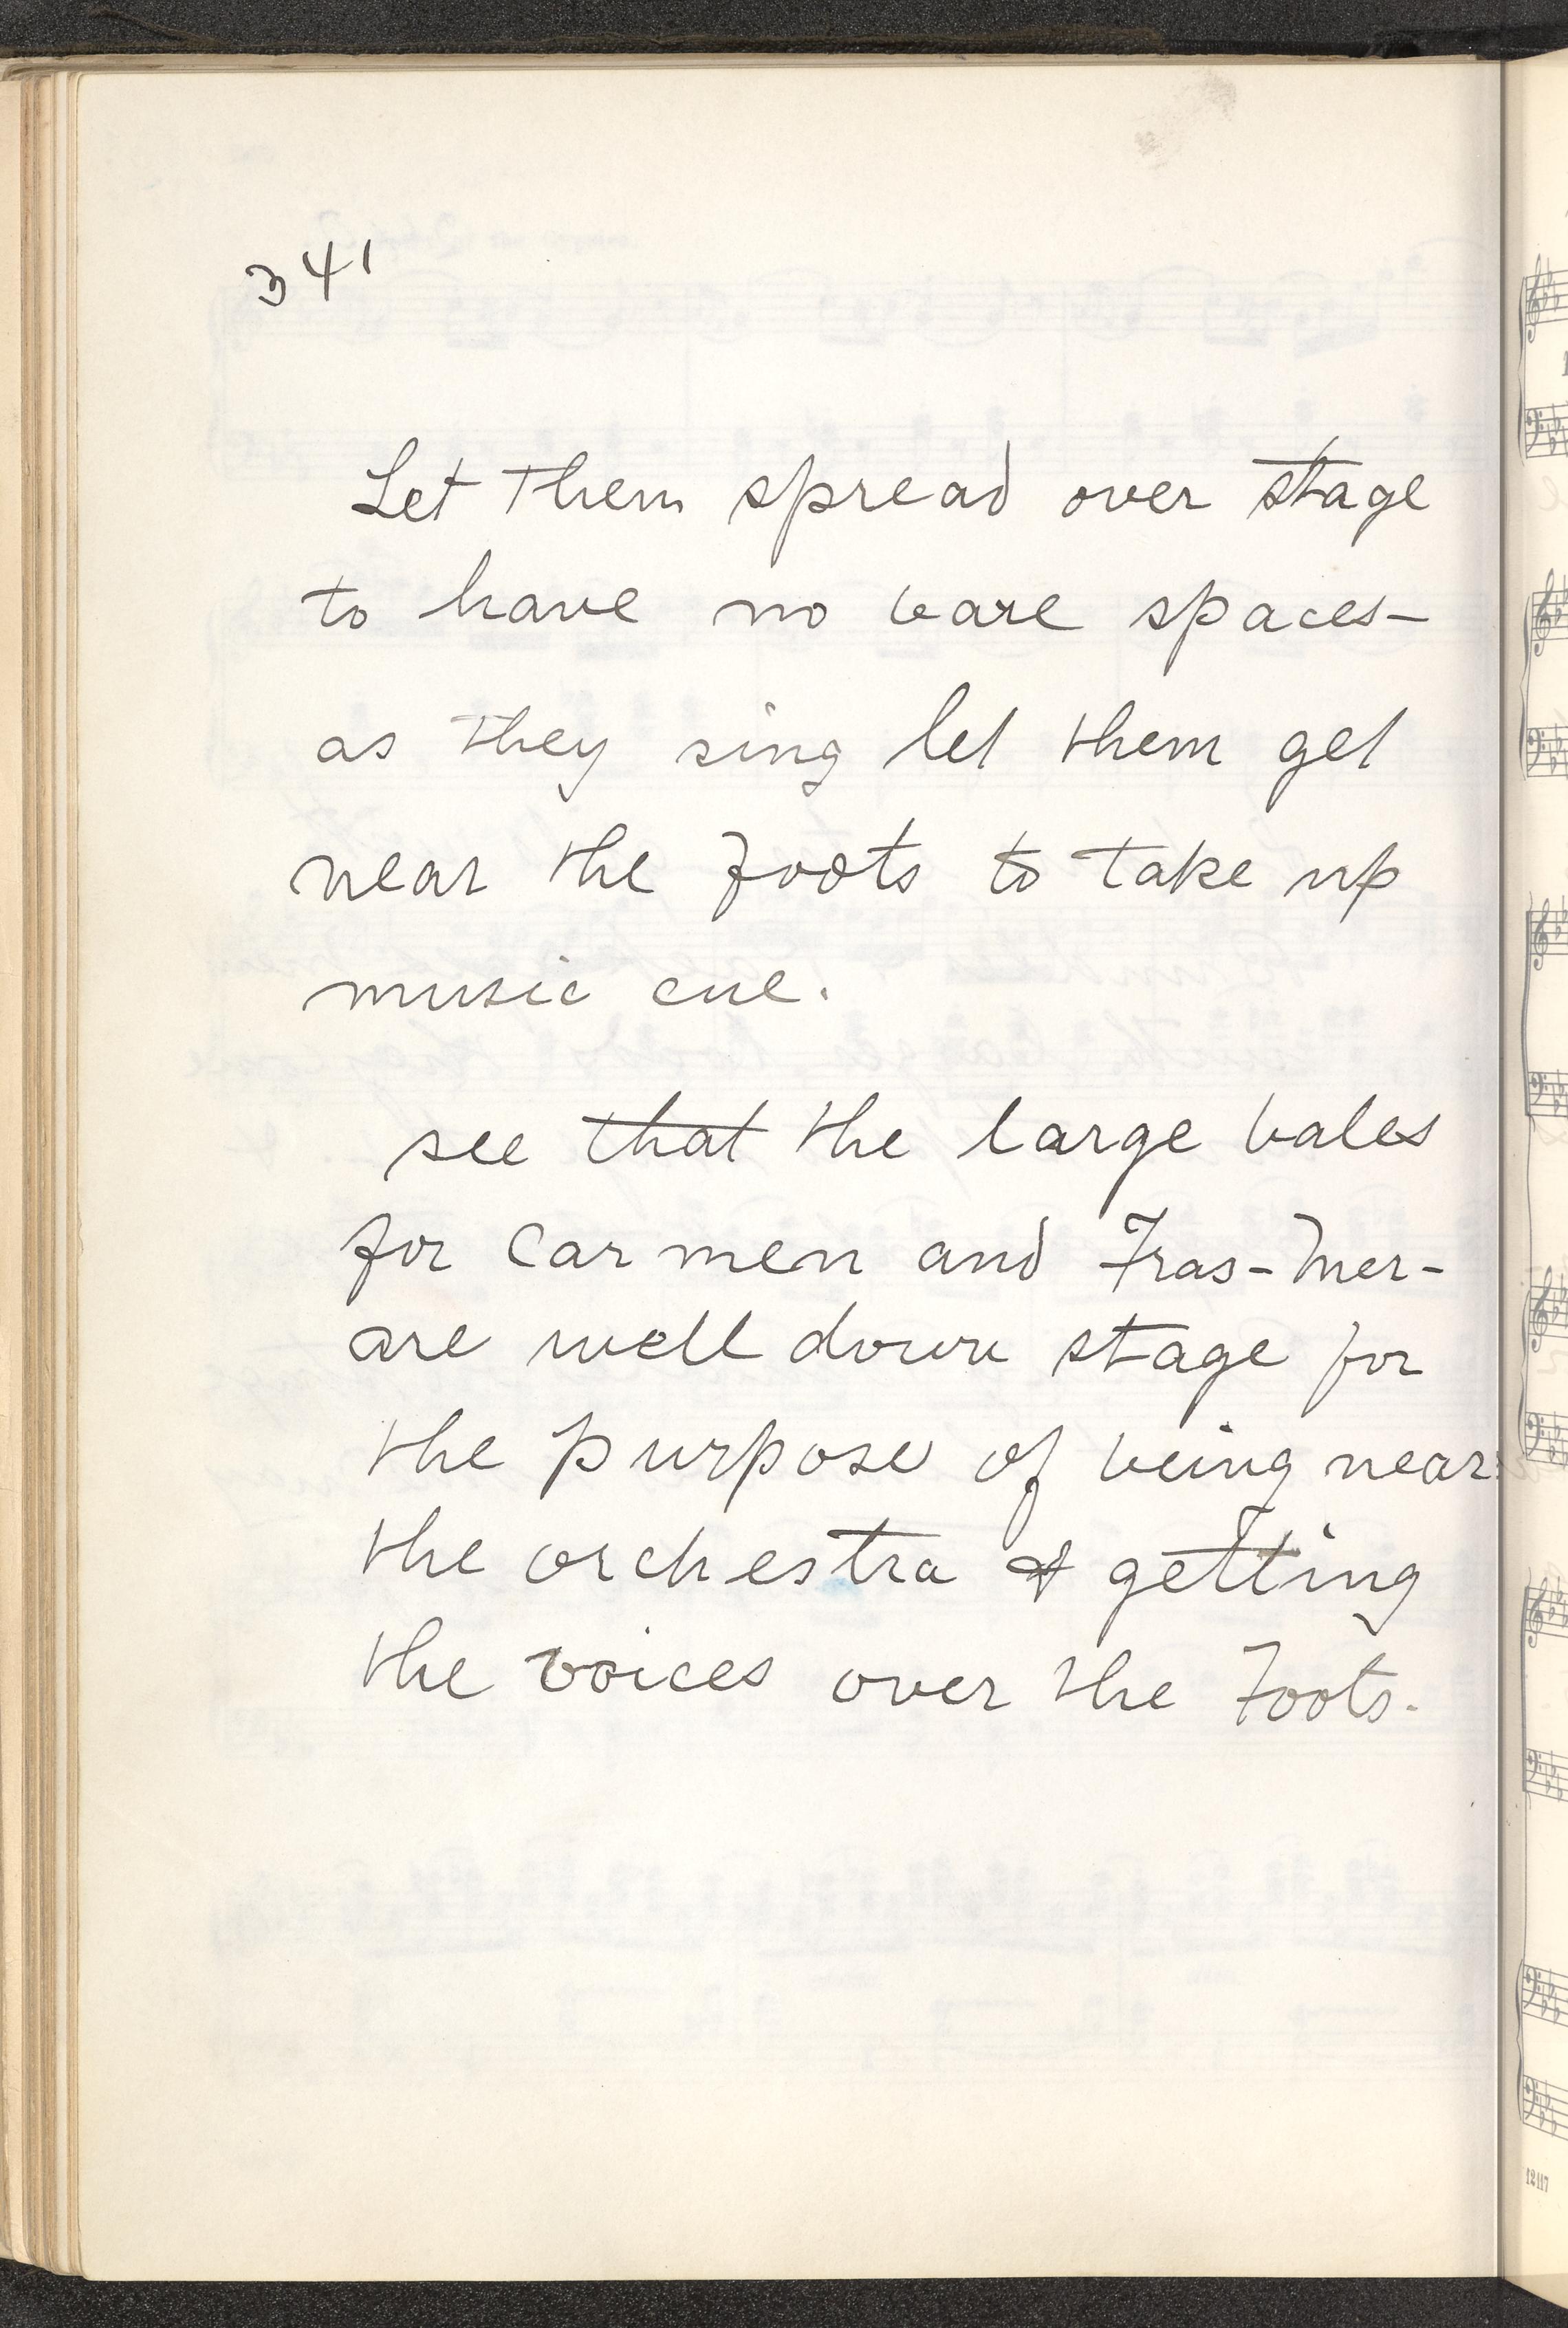 341
Let them spread over stage
to have no bare spaces-
as they sing let them get
near the foots to take up
music cue.
see that the large bales
for Carmen and Fras-Mer-
are well down stage for
the purpose of being near
the orchestra & getting
the voices over the Foots.
12117